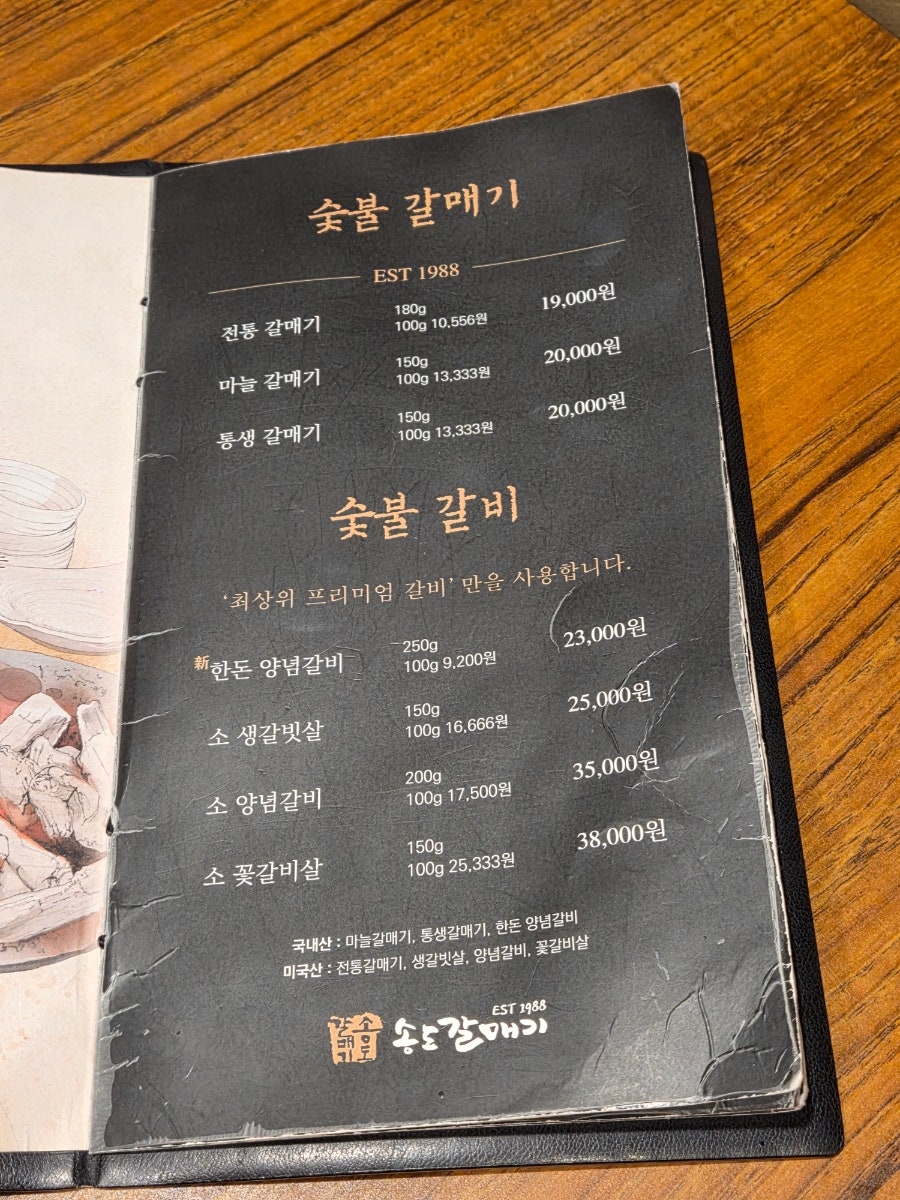 숯불 갈매기
EST 1988
전통 갈매기 180g 19,000원
100g 10,556원
마늘 갈매기 150g 20,000원
100g 13,333원
통생 갈매기 150g 20,000원
100g 13,333원
숯불 갈비
‘최상위 프리미엄 갈비’ 만을 사용합니다.
新 한돈 양념갈비 250g 23,000원
100g 9,200원
소 생갈빗살 150g 25,000원
100g 16,666원
소 양념갈비 200g 35,000원
100g 17,500원
소 꽃갈비살 150g 38,000원
100g 25,333원
국내산 : 마늘갈매기, 통생갈매기, 한돈 양념갈비
미국산 : 전통갈매기, 생갈빗살, 양념갈비, 꽃갈비살
EST 1988
송도갈매기
송도갈매기